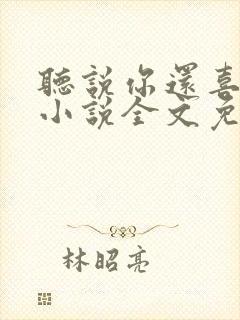 聽說你還喜
小說全文免
林昭亮